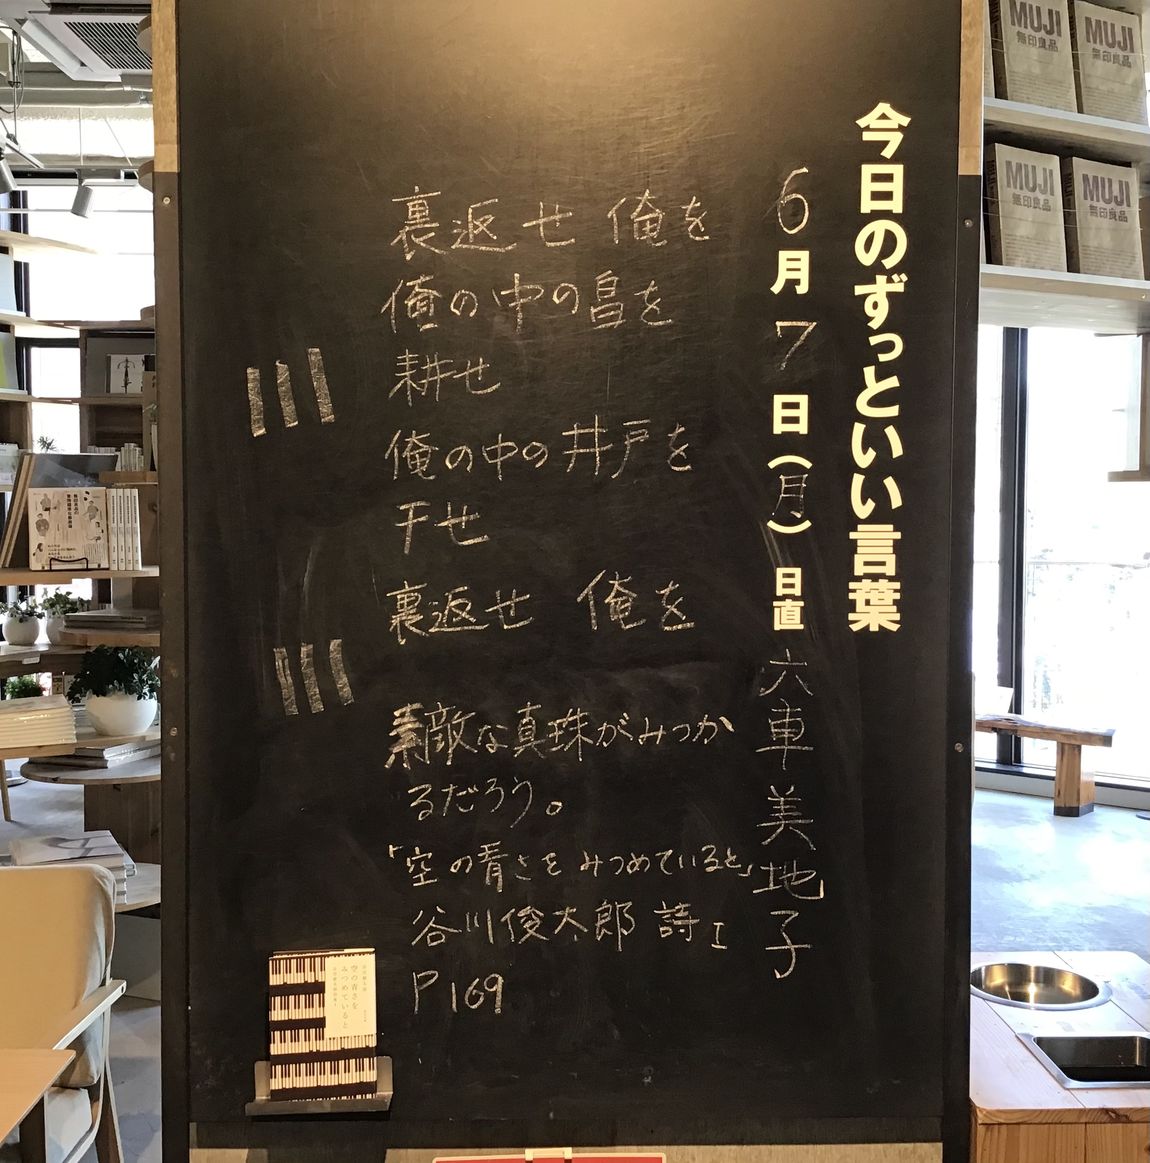 今日のずっといい言葉
6月7日(月) 日直 六車美地子
裏返せ 俺を
俺の中の畠を
耕せ
俺の中の井戸を
干せ
裏返せ 俺を
素敵な真珠がみつか
るだろう。
「空の青さをみつめていると」
谷川俊太郎 詩I
P169
空の青さを
みつめていると
MUJI
無印良品
MUJI
無印良品
MUJI
無印良品
MUJI
無印良品